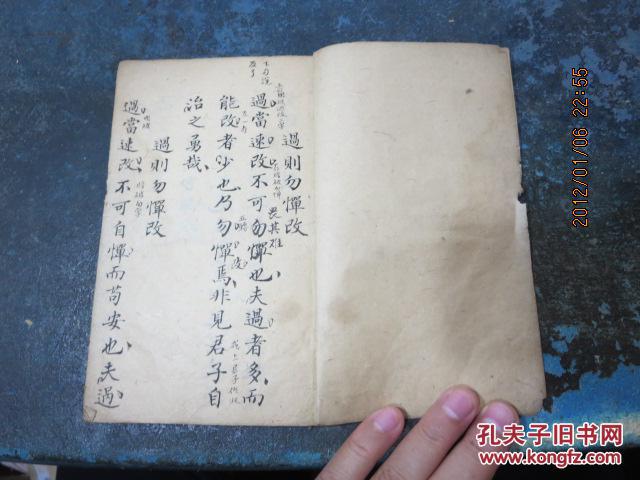 過則勿憚改
過當速改不可勿憚也夫過者多而
畏其難
能改者少也乃勿憚焉非見君子自
治之勇哉
過則勿憚改
過當速改不可自憚而苟安也夫過
2012/01/06 22:55
孔夫子旧书网
www.kongfz.com